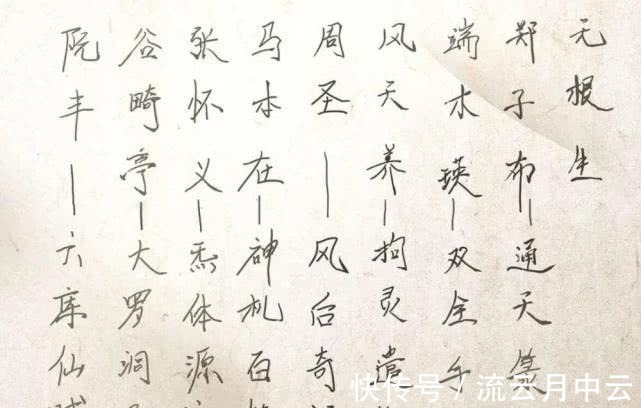 无根生
郑子布—通天箓
端木瑛—双全手
风天养—拘灵遣
周圣—风后奇
马本在—神机百
张怀义—炁体源
谷畸亭—大罗洞
阮丰—六库仙
快传号/流云月中云